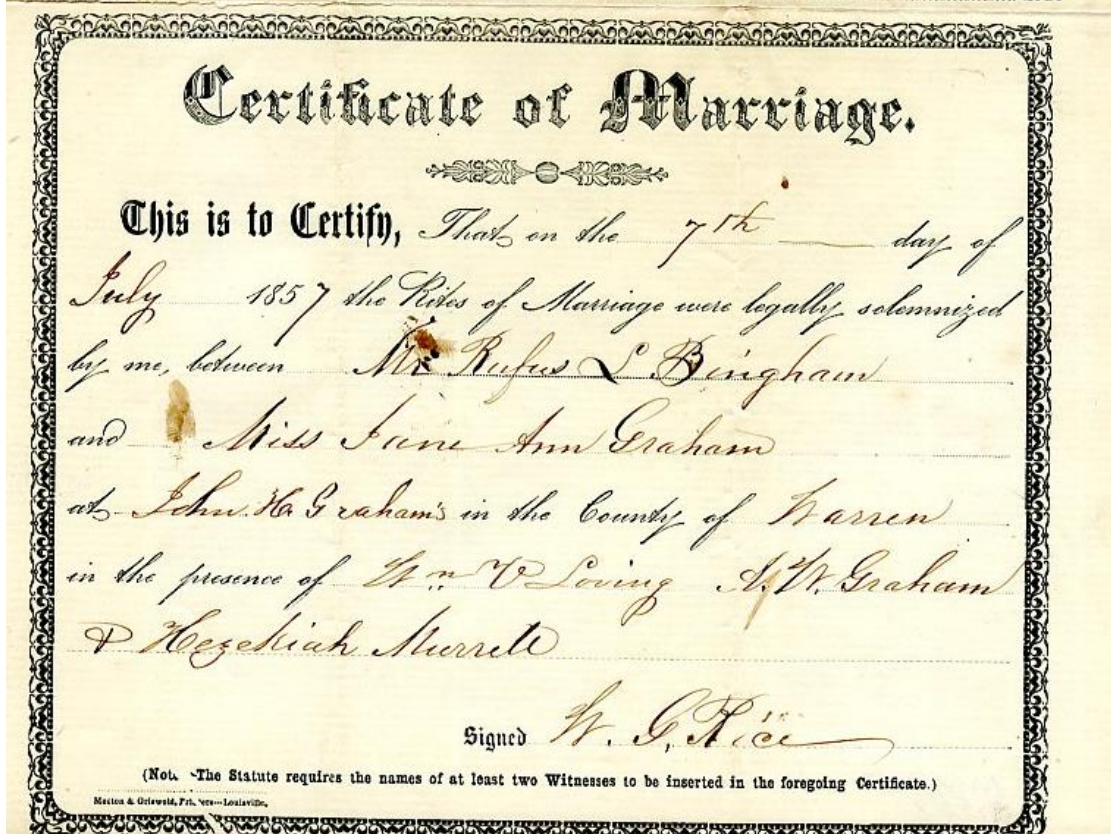 Certificate of Marriage.
This is to Certify, That on the 7th day of
July 1857 the Rites of Marriage were legally solemnized
by me, between Mr Rufus L Bingham
and Miss Jane Ann Graham
at John H. Graham's in the County of Warren
in the presence of Wm V Loving A. W. Graham
& Hezekiah Murrell
Signed W. G. Rice
(Note. The Statute requires the names of at least two Witnesses to be inserted in the foregoing Certificate.)
Morton & Griswold, Printers--Louisville,